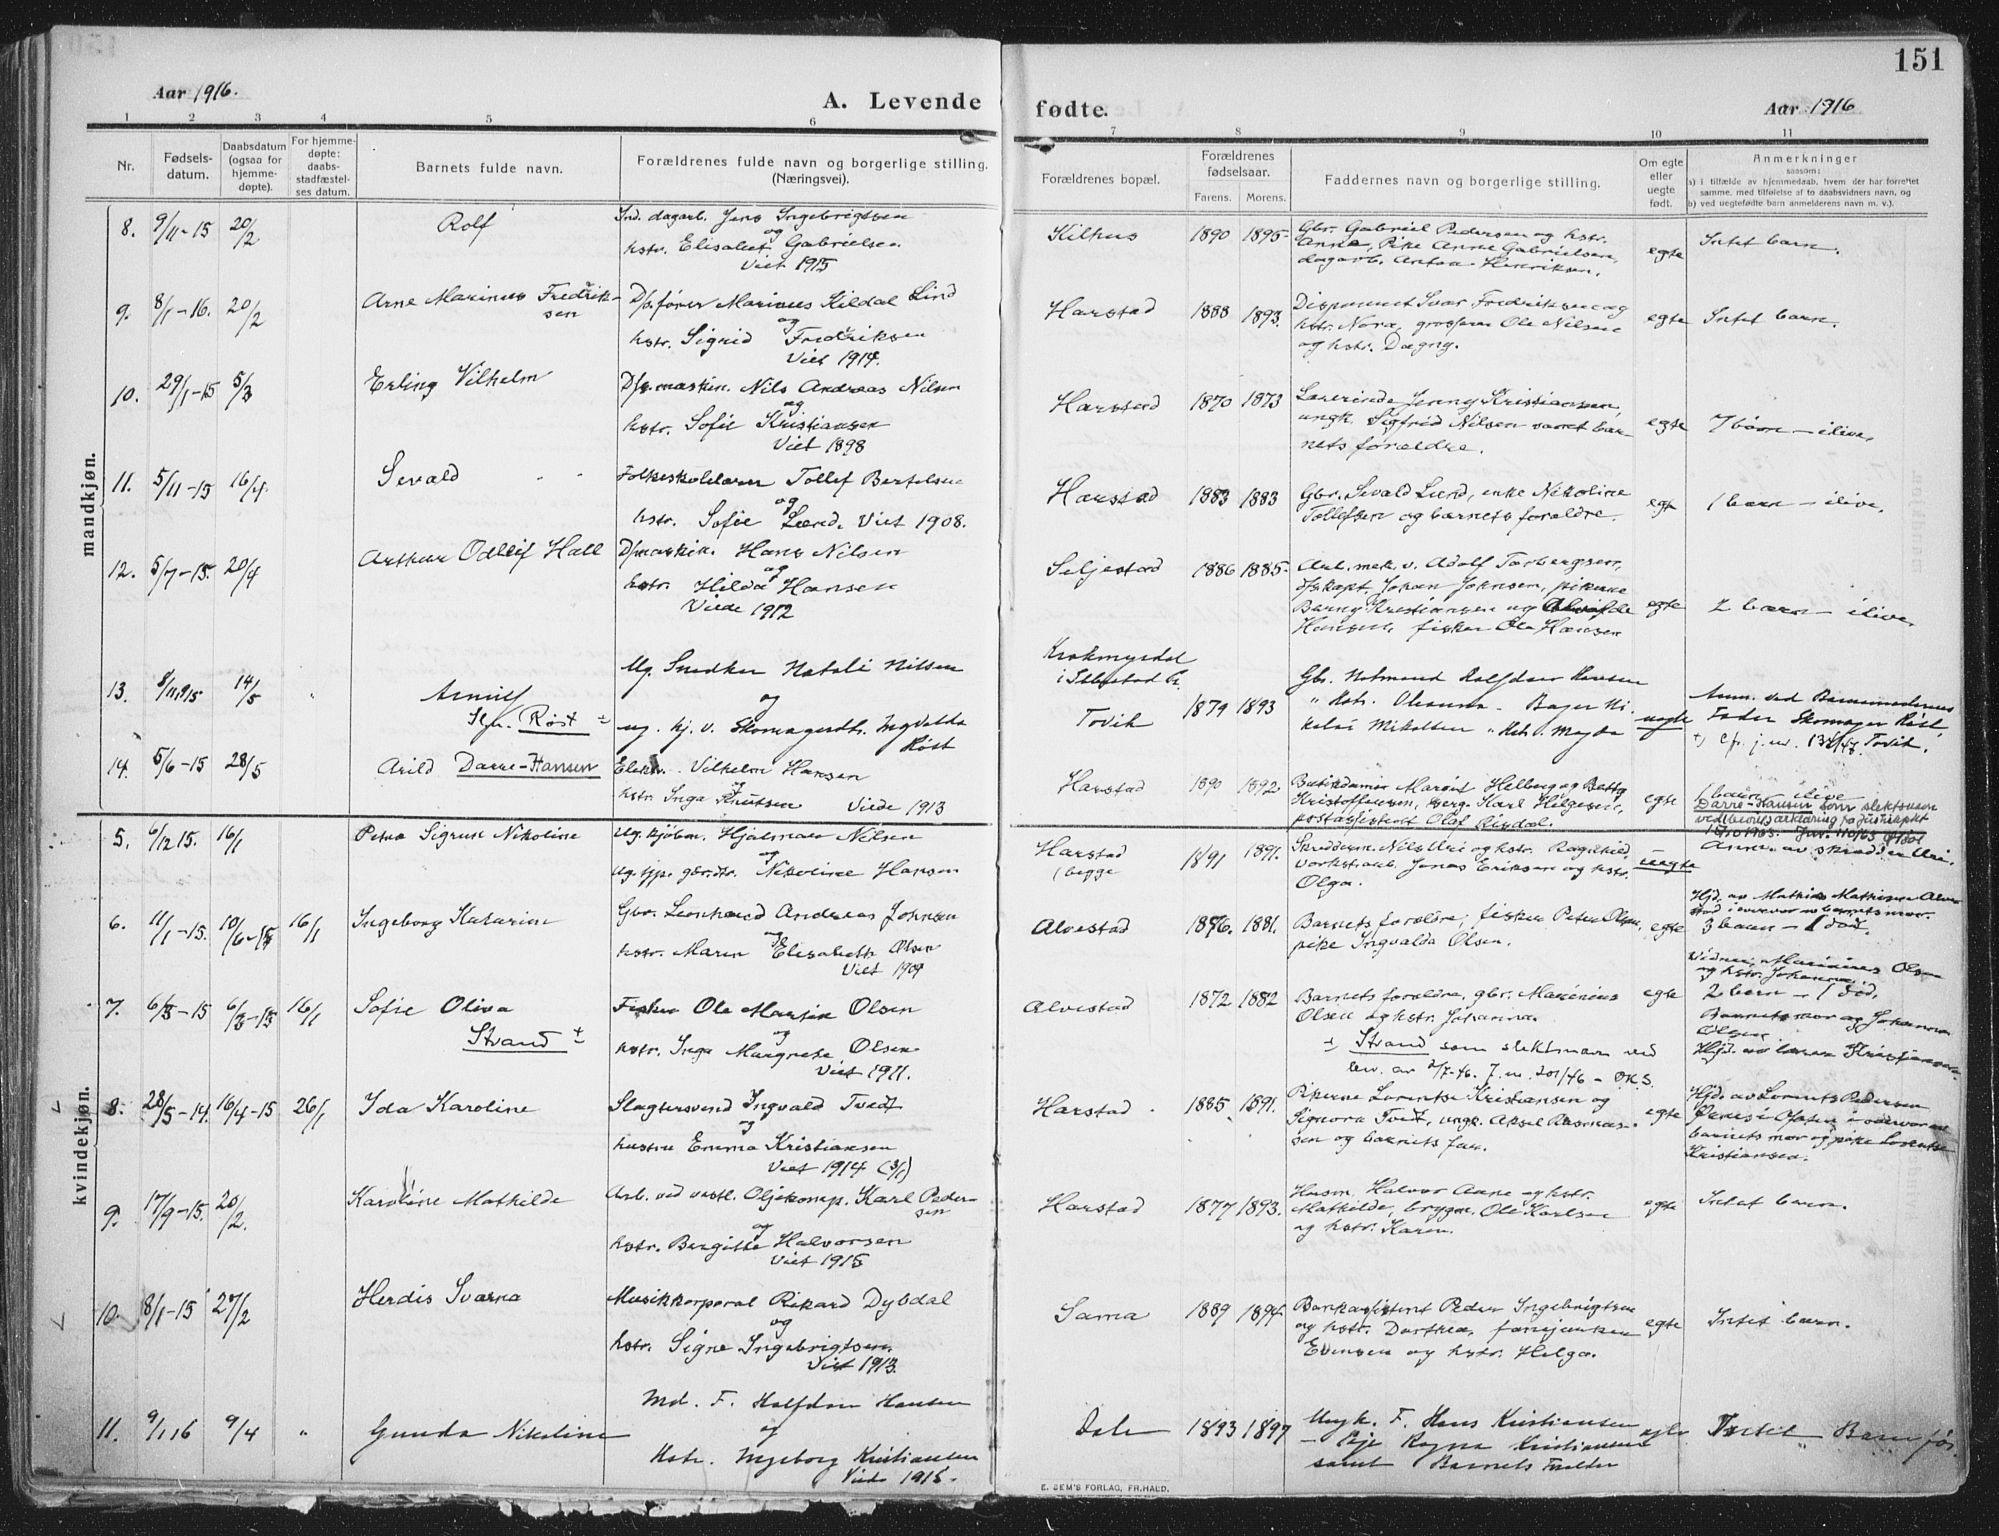 151
Aar 1916.
A. Levende
fødte.
Aar 1916
1 2 3 4 5 6 7 8 9 10 11
Nr.
Fødsels-
datum.
Daabsdatum
(ogsaa for
hjemme-
døpte).
For hjemme-
døpte:
daabs-
stadfæstel-
ses datum.
Barnets fulde navn.
Forældrenes fulde navn og borgerlige stilling.
(Næringsvei).
Forældrenes bopæl.
Forældrenes
fødselsaar.
Farens. Morens.
Faddernes navn og borgerlige stilling.
Om egte
eller
uegte
født.
Anmerkninger
saasom:
a) i tilfælde av hjemmedaab, hvem der har forrettet
samme, med tilføielse af to daabsvidners navn, og
b) ved uegtefødte barn anmelderens navn m. v.).
mandkjøn.
8. 9/11-15 20/2 Rolf
Ind. dagarb. Jens Ingebrigtsen
og
hstr. Elisabet Gabrielsen
Viet 1915
Kilhus 1890 1895
Gbr. Gabriel Pedersen og hstr.
Anna, Pike Anne Gabrielsen,
dagarb. Anton Henriksen.
egte
Intet barn.
9. 8/1-16. 20/2 Arne Marinus Fredrik-
sen
D/s fører Marinus Kildal Lind
og
hstr. Sigrid Fredriksen
Viet 1914.
Harstad 1888 1893.
Disponent Ivar Fredriksen og
hstr. Nora, grosserer Ole Nilsen
og hstr. Dagny.
egte
Intet barn.
10. 29/1-15 5/3 Erling Vilhelm
D/s maskin. Nils Andreas Nilsen
og
hstr. Sofie Kristiansen
Viet 1898
Harstad 1870 1873
Lærerinde Jenny Kristiansen,
ungk. Sigfrid Nilsen samt bar-
nets forældre.
egte
7 børn - ilive.
11. 5/11-15 16/4. Sevald
Folkeskolelærer Tollef Bertelsen
og
hstr. Sofie Lund. Viet 1908.
Harstad 1883 1883
Gbr. Sevald Lund, enke Nikoline
Tollefsen og barnets forældre.
egt
1 barn - ilive.
12. 5/7-15. 20/4 Arthur Odleif Hall
D/maskin. Hans Nilsen
og
hstr. Hilda Hansen
Viede 1912
Seljestad 1886 1885
Arb. mek. v. Adolf Torbergsen,
Johan Johnsen, pikerne
Berny Kristiansen og
Hansen, fisker Ole Hansen
egte
2 børn - ilive.
13. 8/11 915 14/5 "
Arnulf
Røst ±
Ug. Snedker Natali Nilsen
og
ug. hj. v. Skomagerdtr. Ingvalda
Røst
Krokmyrdal
i
Tovik 1879 1893
Gbr. Notmund Halfdan Hansen
" Hstr. Oleanna - Bager Ni-
kolai Mikalsen " Hstr. Magda
uegte
Anm. ved Barnemoderens
Fader Skomager Røst,
Tovik.
14. 5/6-15 28/5 Arild Darre-Hansen
Elektr. Vilhelm Hansen
og
hstr. Inga Knutsen Viede 1913
Harstad 1890 1892
Butikdamer Margit Helberg og Betty
Kristoffersen, Karl Helgesen,
postassistent Olaf Risdal.
egte
1 barn ilive
Darre-Hansen som slektsnavn
kvindekjøn.
5. 6/12 15. 16/1 Petra Sigrun Nikoline
Ug. kjøbm. Hjalmar Nilsen
og
ug. pp. gbr.dtr. Nikoline Hansen
Harstad
(begge 1891 1891.
Skredderm. Nils Uri og hstr. Ragnhild,
verkstarb. Jonas Eriksen og hstr.
Olga.
uegte
Anm. av skrædder Uri.
6. 11/1-15. 10/6-15 16/1 Ingeborg Katarina
Gbr. Leonhard Andreas Johnsen
og
hstr. Maren Elisabeth Olsen
Viet 1904
Alvestad 1876. 1881.
Barnets forældre, fisker Peter Olsen,
pike Ingvalda Olsen.
egte
Hjd. av Mathis Mathisen Alve-
stad i overvær av barnets mor.
3 barn - 1 død.
Vidner Marinius Olsen
og hstr. Johanna.
7. 6/3-15 6/3-15 16/1 Sofie Oliva
Strand ±
Fisker Ole Martin Olsen
og
hstr. Inga Margrete Olsen
Viet 1911.
Alvestad 1872 1882
Barnets forældre, gbr. Marinius
Olsen og hstr. Johanna.
± Strand som slektsnavn ved
bev. av 2/7-46. J.nr. 201/46 - O.K.S.
egte
2 barn - 1 død.
Barnets mor og Johanna
Olsen.
8. 28/5-14. 16/4-15 26/1 Ida Karoline
Slagtersvend Ingvald Tvedt
og
hustru Emma Kristiansen
Viet 1914 (3/1)
Harstad. 1885 1891.
Pikerne Lorentse Kristiansen og
Signora Tveit, ungk. Aksel Rasmus-
sen og barnets far.
egte
Hjd. av Lorents Pedersen
Øynes i Ofoten i overvær av
barnets mor og pike Lorentse
Kristiansen.
9. 17/9-15. 20/2. Karoline Mathilde
Arb. ved vestl. Oljekomp. Karl Peder-
sen
og
hstr. Bergitte Halvorsen
Viet 1915
Harstad 1877 1893.
Husm. Halvor Aane og hstr.
Mathilde, brygm. Ole Karlsen
og hstr. Karen.
egte
Intet barn.
10. 8/1-15 27/2 Herdis Svarna
Musikkorporal Rikard Dybdal
og
hstr. Signe Ingebrigtsen.
Viet 1913.
Sama 1889 1894.
Bankassistent Peder Ingebrigtsen
og hstr. Dorthea, fanejunker
Evensen og hstr. Helga.
egte
Intet barn.
11. 9/1 16 9/4 " Gunda Nikoline
Md. F. Halfdan Hansen
og
Hstr. Ingeborg Kristiansen
Viet 1915.
Dale 1893 1897
Ungk. F. Hans Kristiansen
- Pige Ragna Kristiansen
samt Barnets Fædder
egte
Intet Barn før.
E. SEM'S FORLAG, FR.HALD.